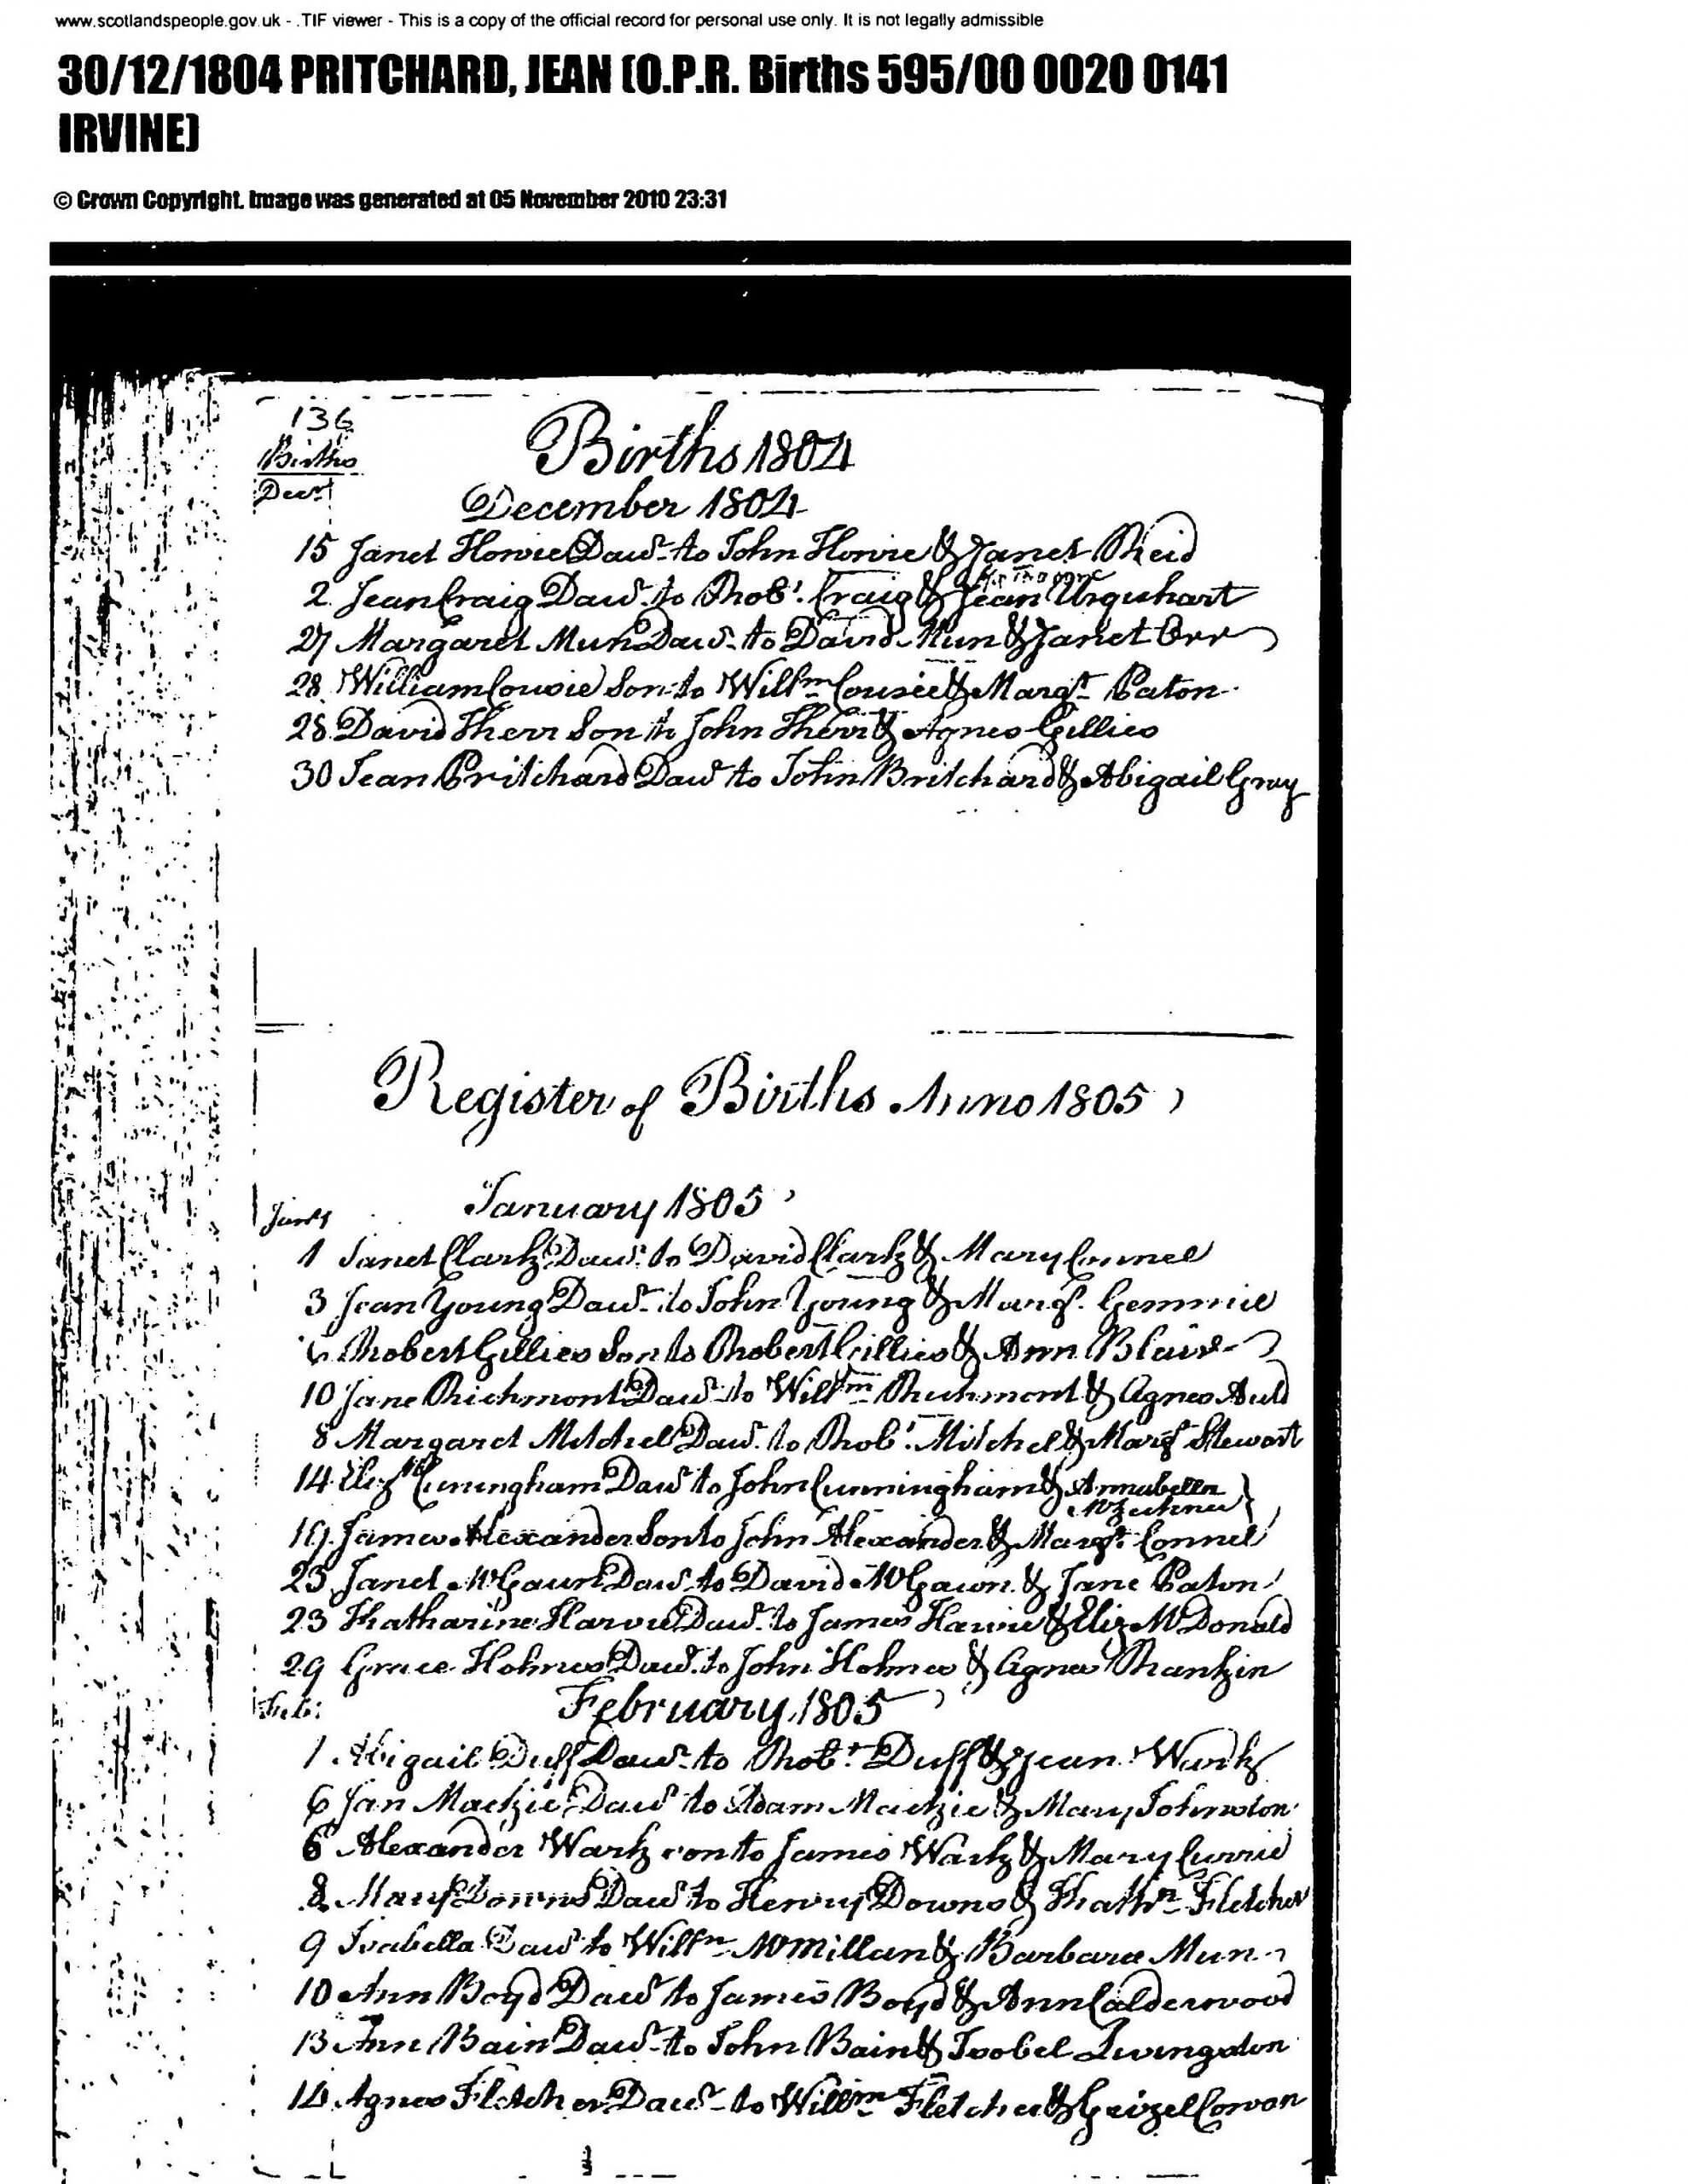 www.scotlandspeople.gov.uk - .TIF viewer - This is a copy of the official record for personal use only. It is not legally admissible
30/12/1804 PRITCHARD, JEAN (O.P.R. Births 595/00 0020 0141
IRVINE)
© Crown Copyright. Image was generated at 05 November 2010 23:31
136
Births
Decr
Births 1804
December 1804
15 Janet Howie Daur to John Howie & Janet Reid
2 Jean Craig Daur to Robt. Craig & Jean Urquhart
27 Margaret Mun Daur to David Mun & Janet Orr
28 William Cousie Son to Willm Cousie & Margt Paton
28 David Kherr Son to John Kherr & Agnes Gillies
30 Jean Pritchard Daur to John Britchard & Abigail Gray
Register of Births Anno 1805
January 1805
1 Janet Clark Daur to David Clark & Mary Connel
3 Jean Young Daur to John Young & Margt. Gemmie
6 Robert Gillies Son to Robert Gillies & Ann Blair
10 Jane Richmont Daur to Willm Richmont & Agnes Auld
8 Margaret Mitchel Daur to Robt. Mitchel & Margt Stewart
14 Elizth Cuningham Daur to John Cunningham & Annabella
19 James Alexander Son to John Alexander & Margt. Connel
23 Janet McGawn Daur to David McGawn & Jane Paton
23 Khatharine Harvie Daur to James Harvie & Eliz McDonald
29 Grace Holmes Daur to John Holmes & Agnes Rankin
Feb:
February 1805
1 Abigail Duff Daur to Robt Duff & Jean Wark
6 Jan Mackie Daur to Adam Mackie & Mary Johnston
6 Alexander Wark son to James Wark & Mary Currie
8 Mary Downs Daur to Henry Downs & Khathn Fletcher
9 Isabella Daur to Willm McMillan & Barbara Mun
10 Ann Boyd Daur to James Boyd & Ann Calderwood
13 Ann Bain Daur to John Bain & Isobel Livingston
14 Agnes Fletcher Daur to Willm Fletcher & Grizel Cowan